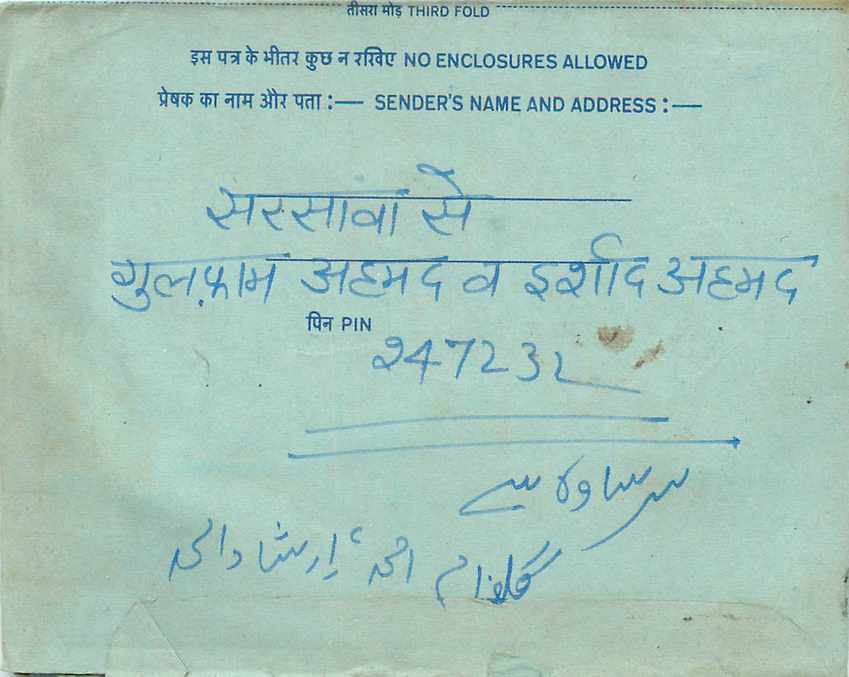 तीसरा मोड़ THIRD FOLD
इस पत्र के भीतर कुछ न रखिए NO ENCLOSURES ALLOWED
प्रेषक का नाम और पता :— SENDER'S NAME AND ADDRESS :—
सरसावा से
गुलफ़ाम अहमद व इर्शाद अहमद
पिन PIN
247232
سرساوہ سے
گلفام احمد، ارشاد احمد